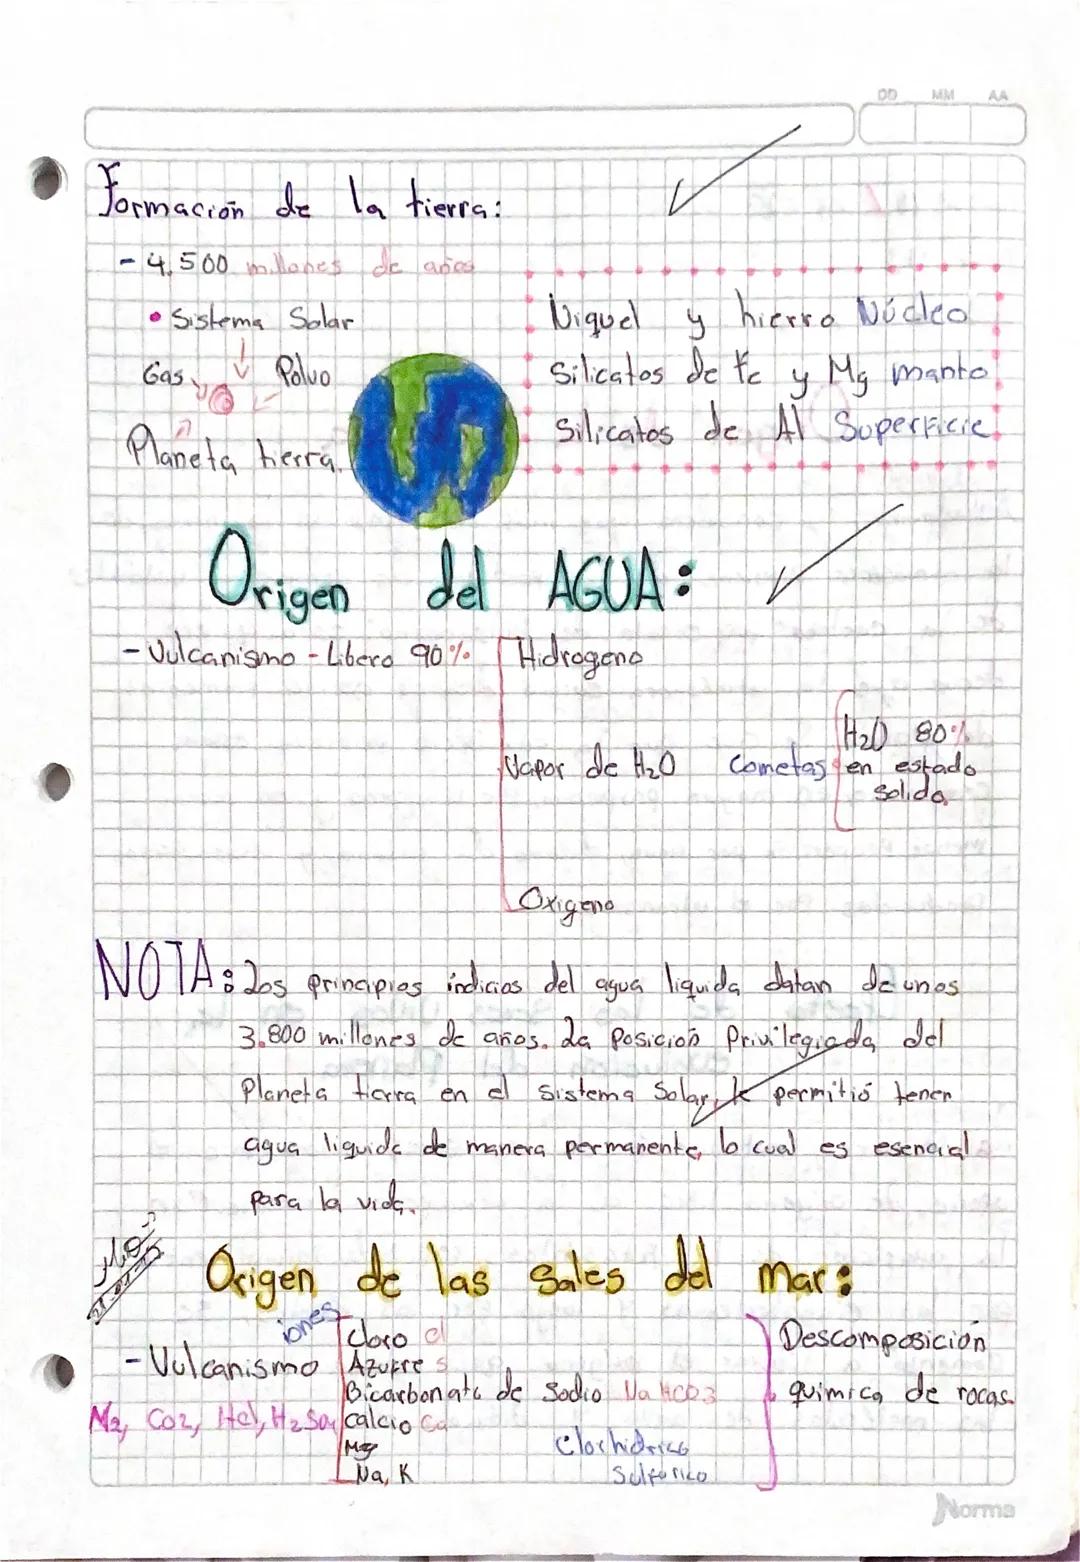 DD MM AA
Formación de la tierra:
- 4,500 millones de años
• Sistema Solar
Gas Polvo
Planeta tierra.
Niquel y hierro Núcleo
Silicatos de Fe y Mg manto
Silicatos de Al Superficie
Origen del AGUA:
- Vulcanismo - Libero 90%
Hidrogeno
Vapor de H2O
Oxigeno
Cometas
H2O 80%
en estado
solido
NOTA: Los principios indicios del agua liquida datan de unos
3.800 millones de años. La posición Privilegiada del
Planeta tierra en el sistema Solar, le permitió tener
agua liquida de manera permanente, lo cual es esencial
para la vida.
Origen de las Sales del mar:
- Vulcanismo
iones
Cloro cl
Azufre s
Bicarbonato de Sodio Na HCO3
calcio Ca
Mg
Na, K
N2, CO2, Hcl, H2SO4
Clorhidrico
Sulfurico
Descomposición
quimica de rocas.
Norma